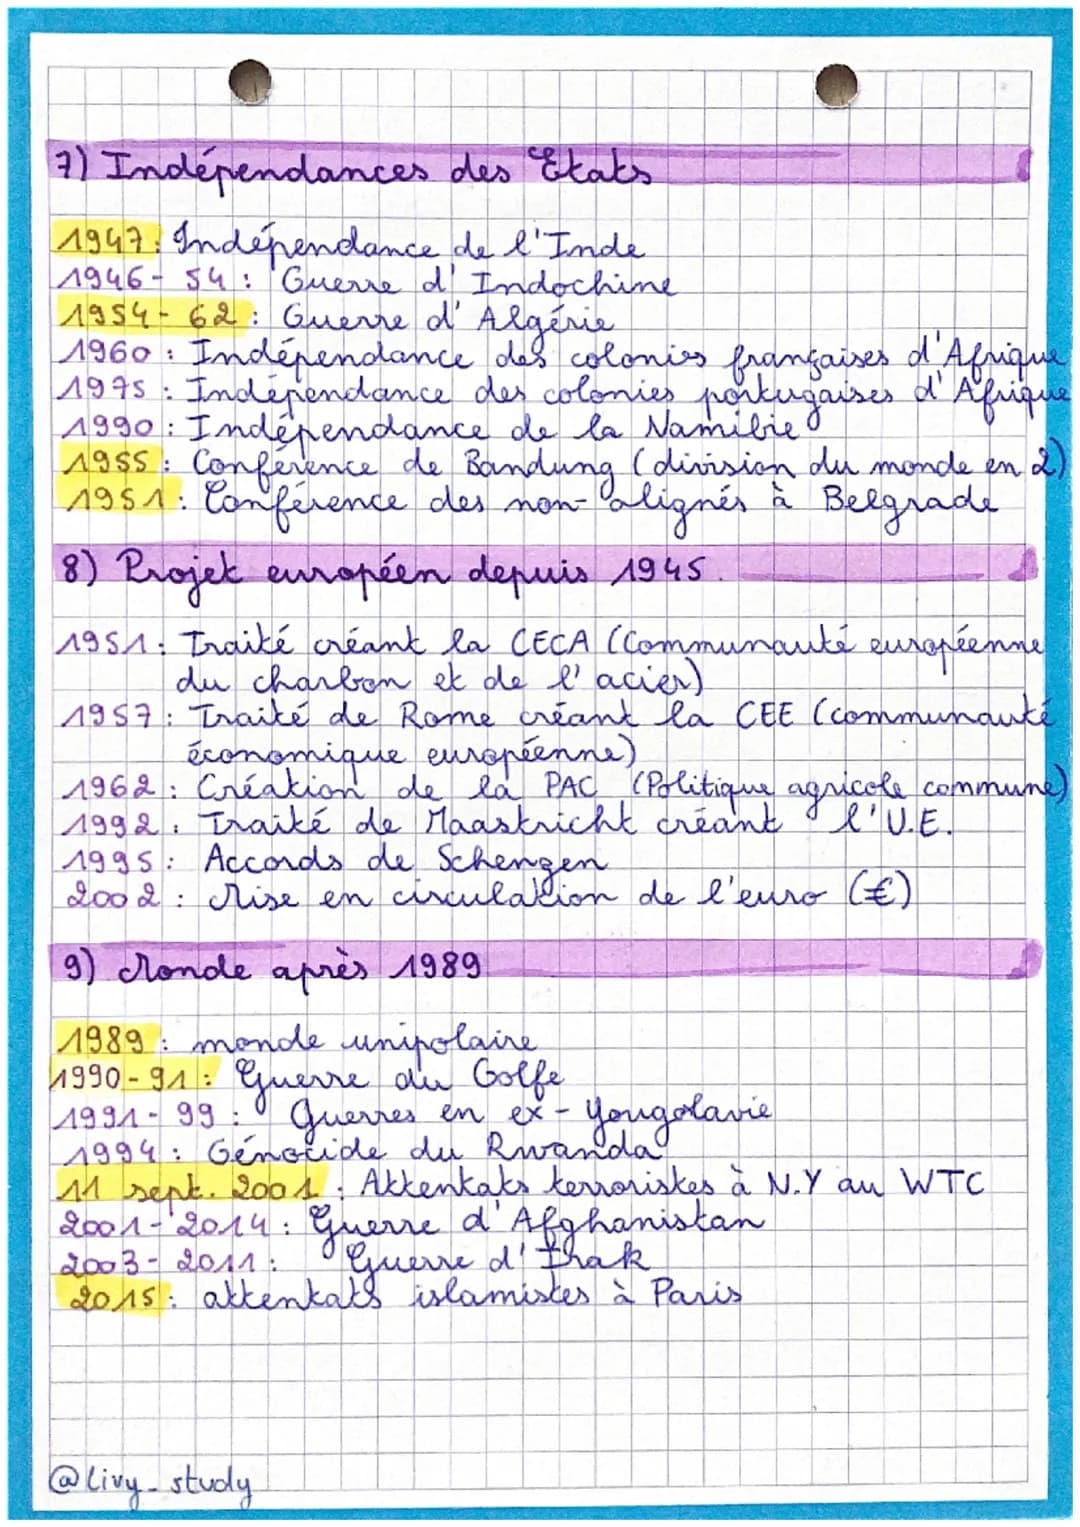 7) Indépendances des Etats
1947: Indépendance de l'Inde
1946-54 : Guerre d'Indochine
1954-62 : Guerre d'Algérie
1960 : Indépendance des colonies françaises d'Afrique
1975 : Indépendance des colonies portugaises d'Afrique
1990 : Indépendance de la Namibie
1955 : Conférence de Bandung (division du monde en 2)
1951 : Conférence des non-alignés à Belgrade
8) Projet européen depuis 1945.
1951 : Traité créant la CECA (Communauté européenne
du charbon et de l'acier)
1957 : Traité de Rome créant la CEE (communauté
économique européenne)
1962 : Création de la PAC (Politique agricole commune)
1992 : Traité de Maastricht créant l'U.E.
1995 : Accords de Schengen
2002 : Mise en circulation de l'euro (€)
9) Monde après 1989
1989 : monde unipolaire
1990-91 : Guerre du Golfe
1991-99 : Guerres en ex-Yougolavie
1994 : Génocide du Rwanda
11 sept. 2001 : Attentats terroristes à N.Y au WTC
2001-2014 : Guerre d'Afghanistan
2003-2011 : Guerre d'Irak
2015 : attentats islamistes à Paris
@livy_study